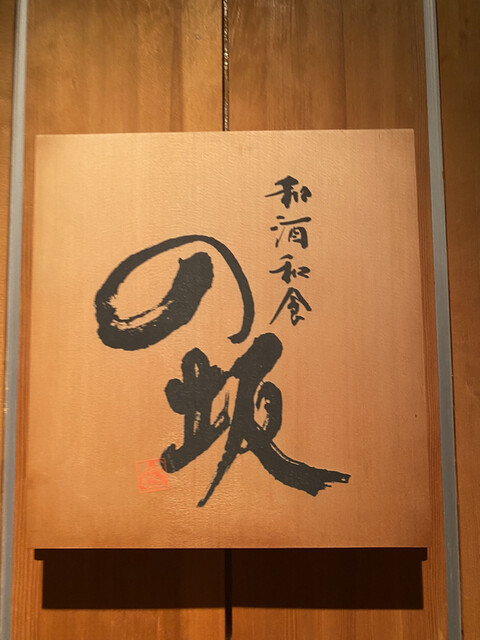 和酒和食
の坂